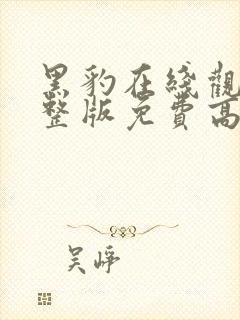 黑豹在綫觀
整版免費高
吴崢